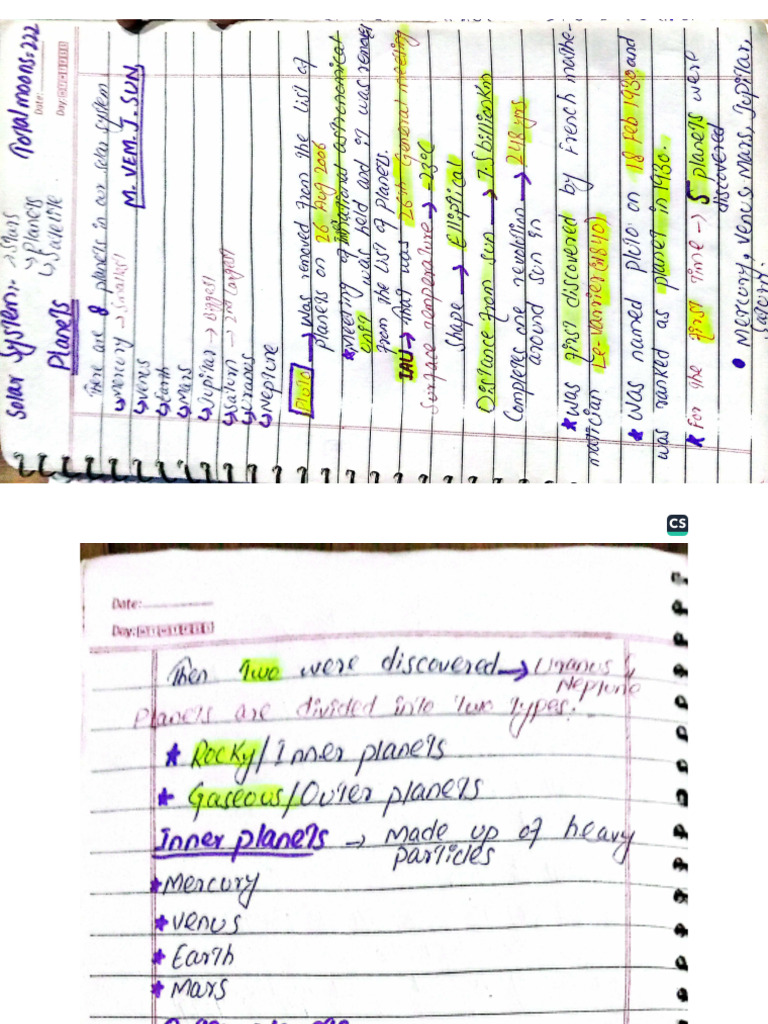 Solar System: → Stars
↳ planets
↳ Satellite
Total moons = 222
Date:
Day:
Planets
There are 8 planets in our solar system
M. VEM. J. SUN
↳ mercury → smallest
↳ venus
↳ Earth
↳ Mars
↳ Jupitar → Biggest
↳ Saturn → 2nd largest
↳ Uranus
↳ Neptune
Pluto → was removed from the list of
planets on 26 Aug 2006
* Meeting of astronomical
was held and it was
from the list of planets.
IAU → that was 26th General meeting
Surface temperature → -23°C
Shape → Elliptical
Distance from sun → 7.5 billion Km
Completes one revolution → 248 yrs
around sun in
* was first discovered by French mathe-
matician
* was named pluto on 18 Feb 1930 and
was ranked as planet in 1930.
* For the first time → 5 planets were
discovered
• Mercury, Venus, Mars, Jupitar,
Saturn.
CS
Date:
Day:
Then Two were discovered → Uranus &
Neptune
Planets are divided into two types:
* Rocky/Inner planets
* Gaseous/Outer planets
Inner planets → Made up of heavy
particles
* Mercury
* Venus
* Earth
* Mars